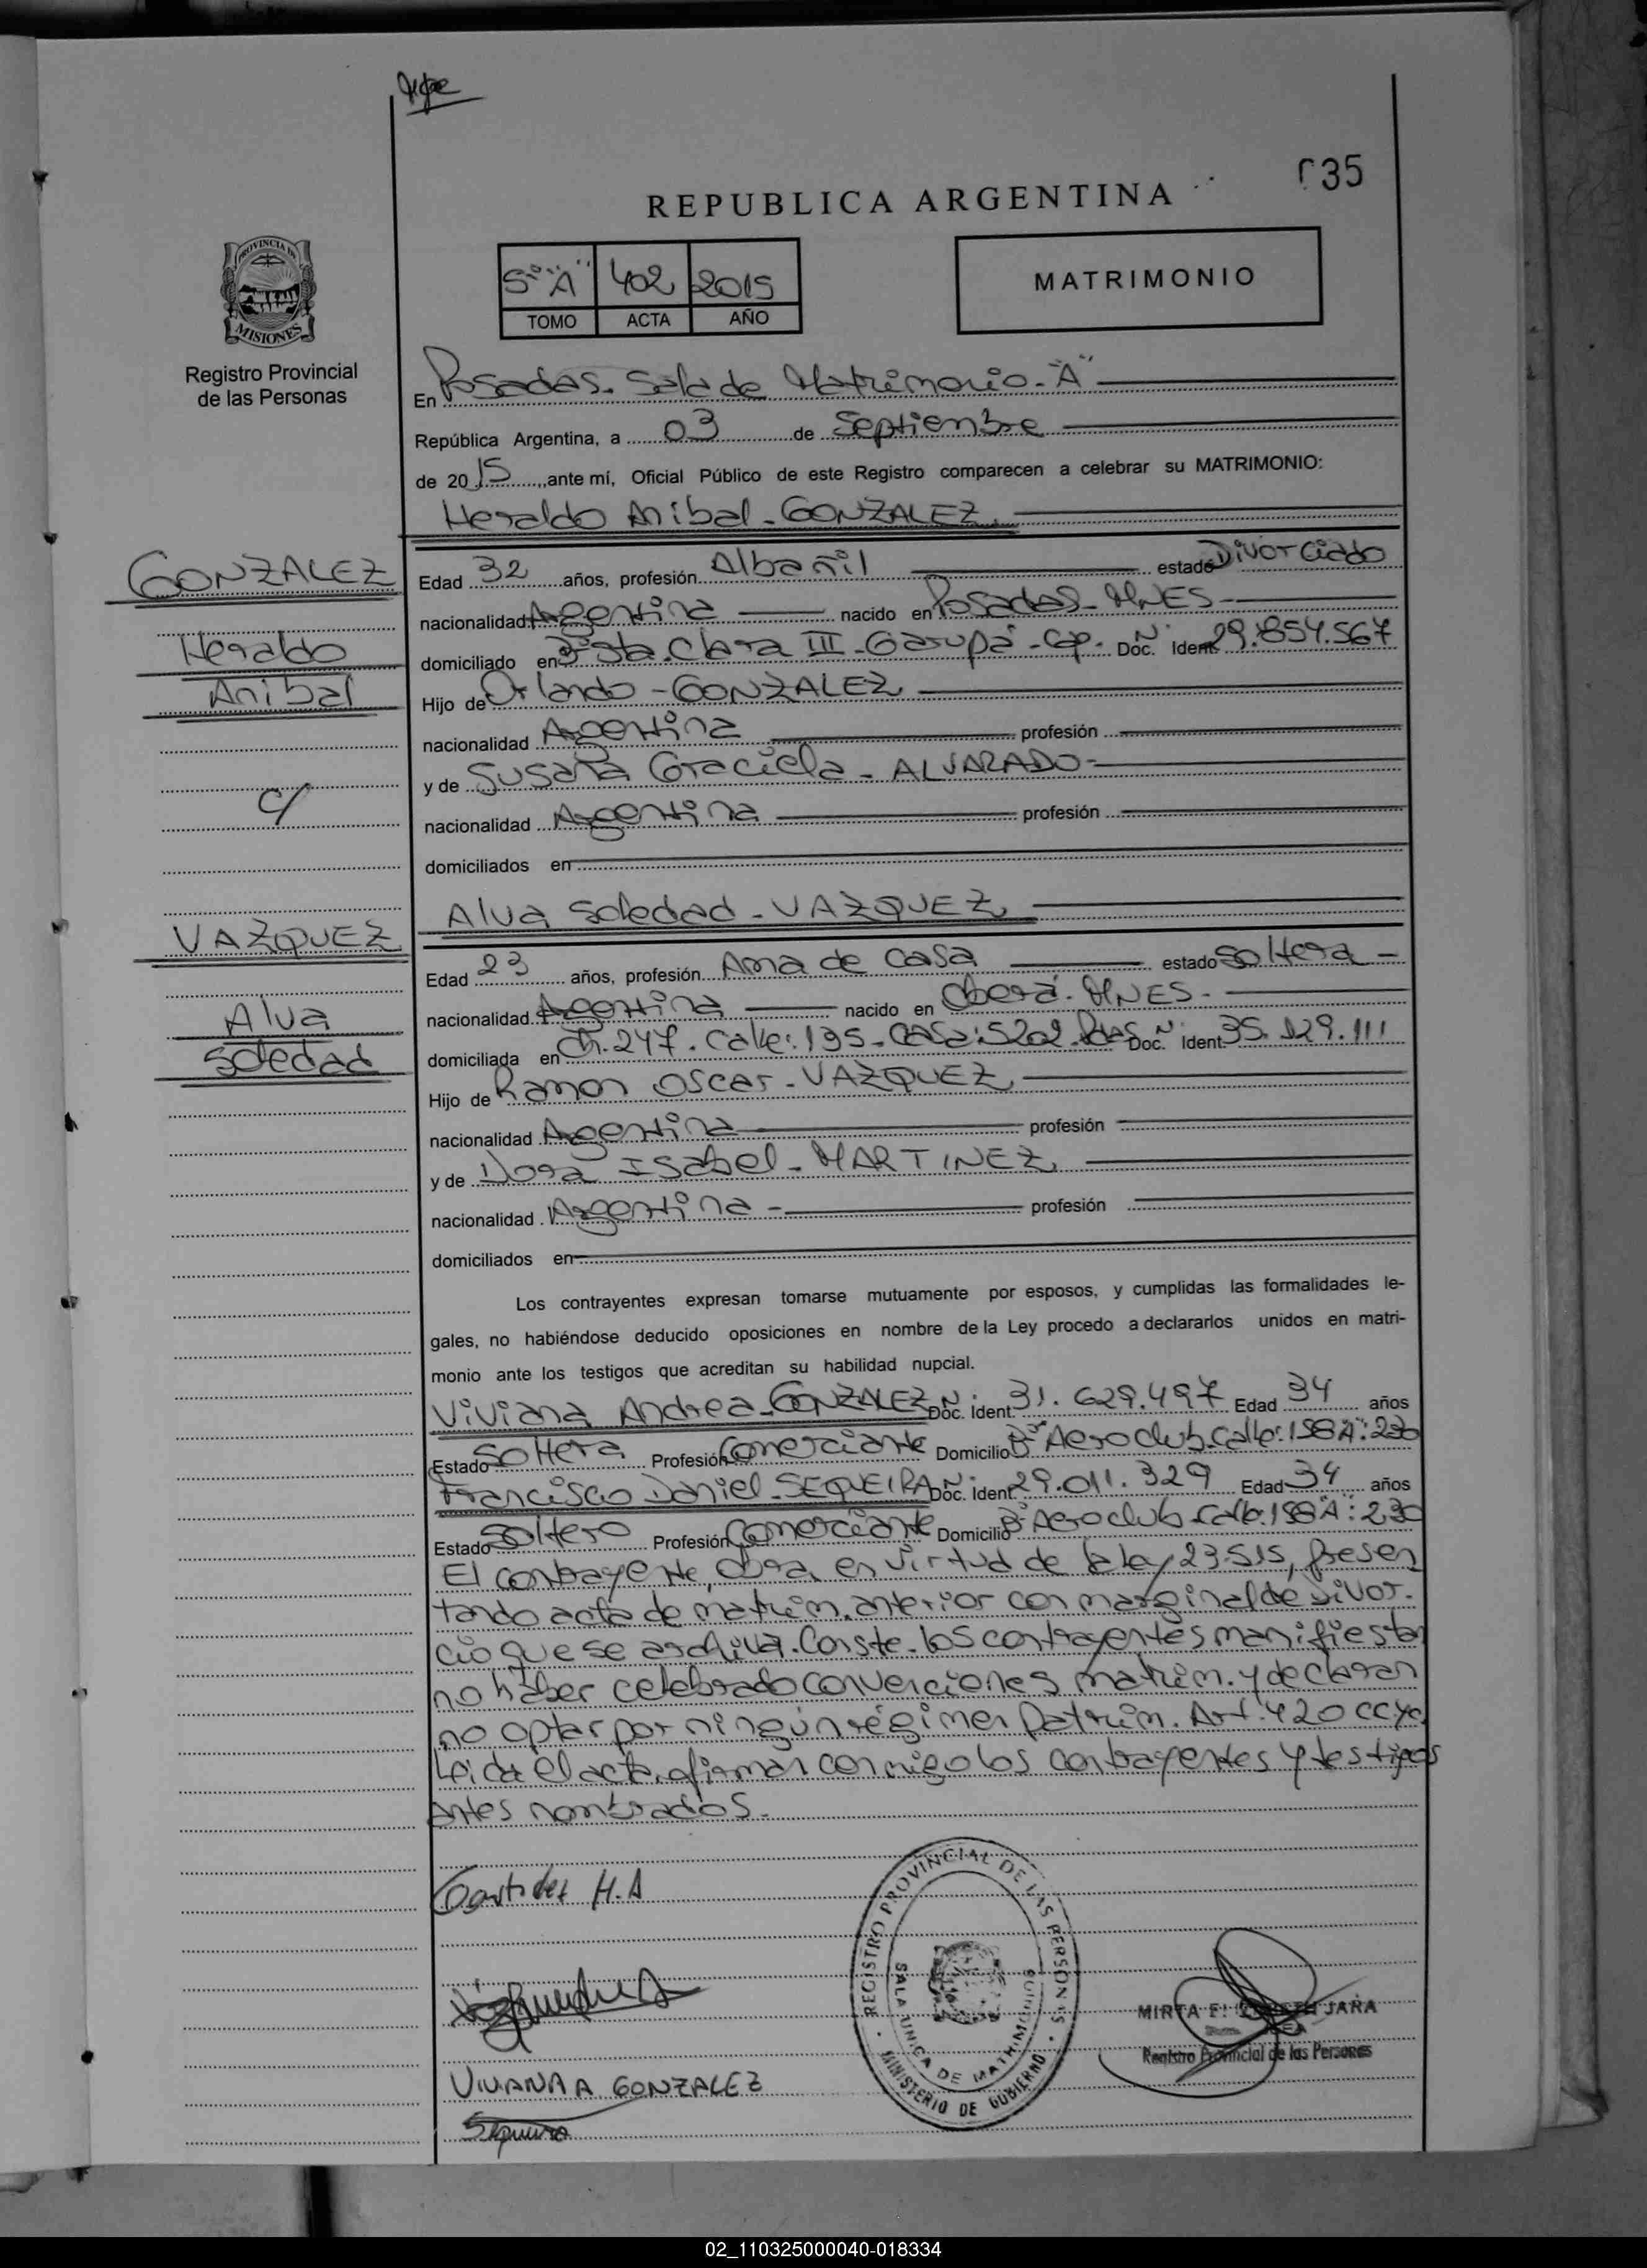 035
REPUBLICA ARGENTINA
5º "A" 402 2015
TOMO ACTA AÑO
MATRIMONIO
PROVINCIA DE
MISIONES
Registro Provincial
de las Personas
En Posadas. Sala de Matrimonio - "A"
República Argentina, a 03 de Septiembre
de 2015, ante mí, Oficial Público de este Registro comparecen a celebrar su MATRIMONIO:
Heraldo Anibal - GONZALEZ
GONZALEZ
Heraldo
Anibal
c/
VAZQUEZ
Alva
Soledad
Edad 32 años, profesión Albañil estado Divorciado
nacionalidad Argentina nacido en Posadas - MNES -
domiciliado en Bº Sta. Clara III - Garupá - Cap. Doc. Nº Ident. 29.854.567
Hijo de Orlando - GONZALEZ
nacionalidad Argentina profesión
y de Susana Graciela - ALVARADO -
nacionalidad Argentina profesión
domiciliados en
Alva Soledad - VAZQUEZ
Edad 23 años, profesión Ama de casa estado Soltera -
nacionalidad Argentina nacido en Oberá - MNES -
domiciliada en Ch. 247. Calle: 195 - Casa: 5202. Pdas Doc. Nº Ident. 35.129.111
Hijo de Ramon Oscar - VAZQUEZ
nacionalidad Argentina profesión
y de Dora Isabel - MARTINEZ
nacionalidad Argentina - profesión
domiciliados en
Los contrayentes expresan tomarse mutuamente por esposos, y cumplidas las formalidades le-
gales, no habiéndose deducido oposiciones en nombre de la Ley procedo a declararlos unidos en matri-
monio ante los testigos que acreditan su habilidad nupcial.
Viviana Andrea - GONZALEZ Doc. Nº Ident. 31.629.497 Edad 34 años
Estado Soltera Profesión Comerciante Domicilio Bº Aeroclub - Calle: 158 "A": 230
Francisco Daniel - SEQUEIRA Doc. Nº Ident. 29.011.329 Edad 34 años
Estado Soltero Profesión Comerciante Domicilio Bº Aeroclub - Calle: 158 "A": 230
El contrayente, obra en virtud de la ley 23.515, presen
tando acta de matrim. anterior con marginal de divor-
cio que se archiva. Conste. los contrayentes manifiestan
no haber celebrado convenciones matrim. y declaran
no optar por ningún régimen Patrim. Art. 420 ccyc
Leida el acta, firman conmigo los contrayentes y testigos
antes nombrados.
H.A
VIVIANA A GONZALEZ
REGISTRO PROVINCIAL DE LAS PERSONAS
SALA UNICA DE MATRIMONIO
MINISTERIO DE GOBIERNO
MIRTA JARA
Registro Provincial de las Personas
02_110325000040-018334